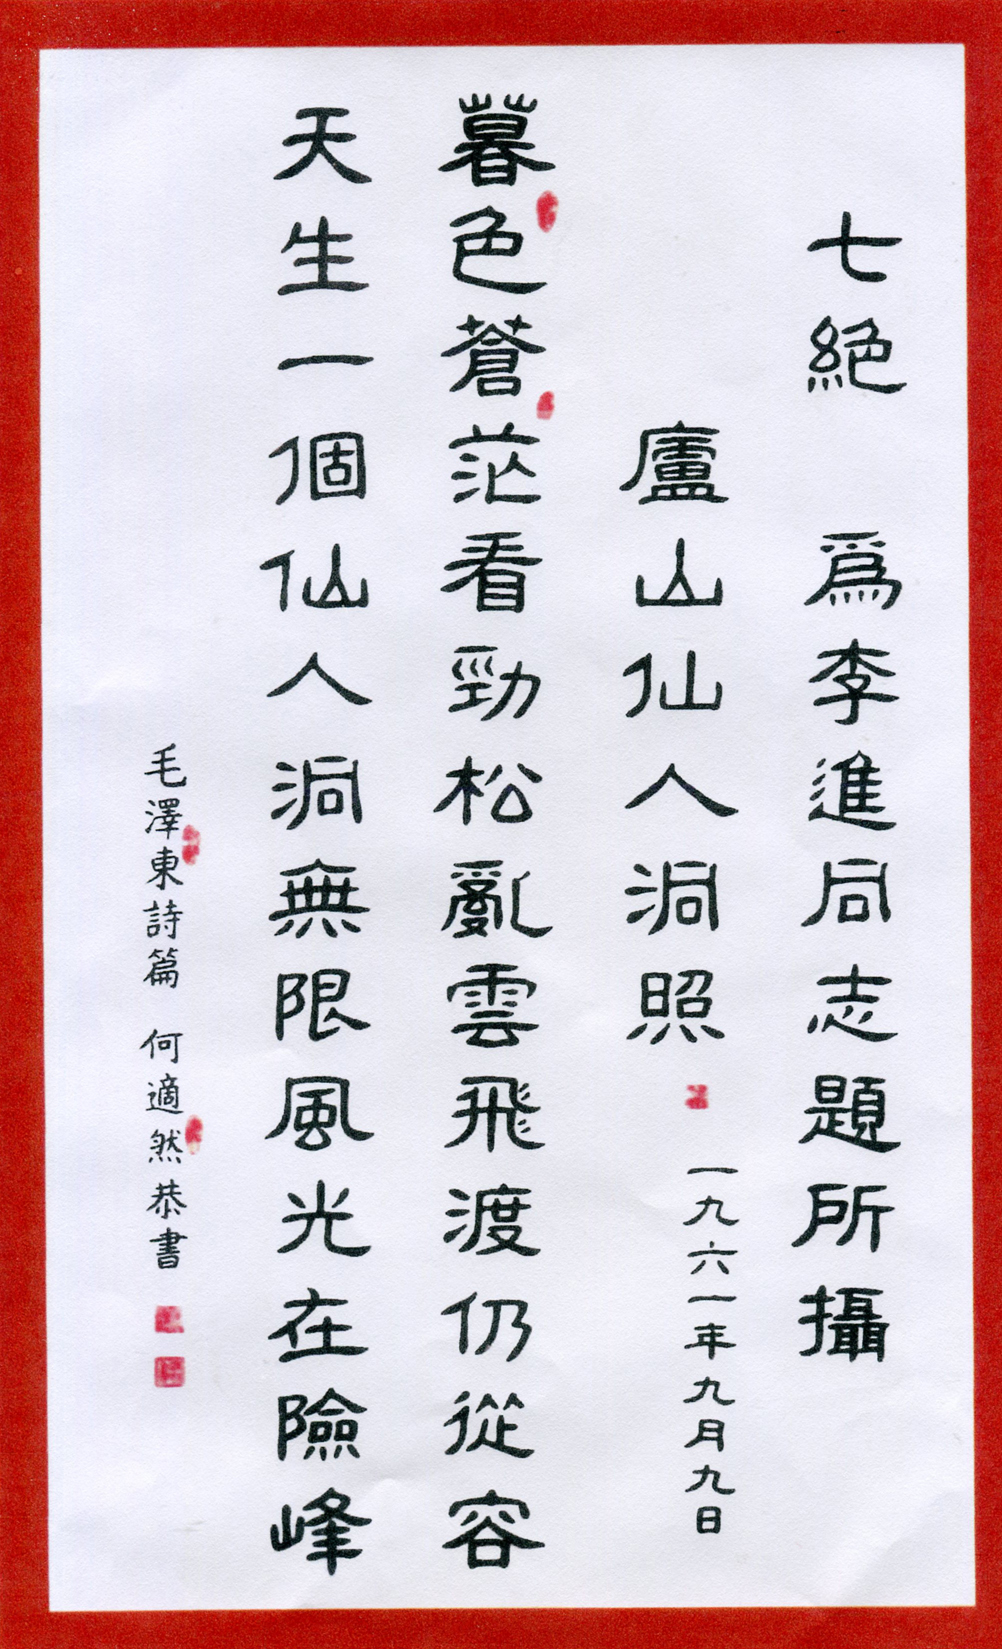 七絕 爲李進同志題所攝
廬山仙人洞照 一九六一年九月九日
暮色蒼茫看勁松亂雲飛渡仍從容
天生一個仙人洞無限風光在險峰
毛澤東詩篇 何適然恭書